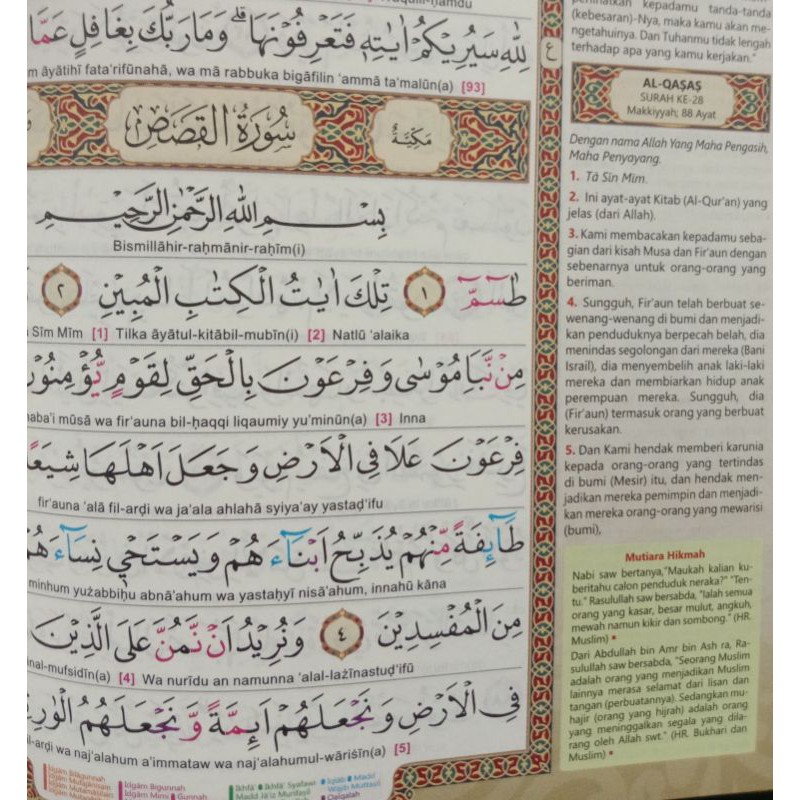 للهِ سَيُرِيْكُمْ اٰيٰتِهٖ فَتَعْرِفُوْنَهَاۗ وَمَا رَبُّكَ بِغَافِلٍ عَمَّا
m āyātihī fata'rifūnahā, wa mā rabbuka bigāfilin 'ammā ta'malūn(a) [93]
سُوْرَةُ الْقَصَصِ
مَكِّيَّةٌ
بِسْمِ اللهِ الرَّحْمٰنِ الرَّحِيْمِ
Bismillāhir-raḥmānir-raḥīm(i)
طٰسۤمّۤ ١ تِلْكَ اٰيٰتُ الْكِتٰبِ الْمُبِيْنِ ٢
Sīm Mīm [1] Tilka āyātul-kitābil-mubīn(i) [2] Natlū 'alaika
مِنْ نَّبَاِ مُوْسٰى وَفِرْعَوْنَ بِالْحَقِّ لِقَوْمٍ يُّؤْمِنُوْنَ
naba'i mūsā wa fir'auna bil-ḥaqqi liqaumiy yu'minūn(a) [3] Inna
فِرْعَوْنَ عَلَا فِى الْاَرْضِ وَجَعَلَ اَهْلَهَا شِيَعًا
fir'auna 'alā fil-arḍi wa ja'ala ahlahā syiya'ay yastaḍ'ifu
طَاۤىِٕفَةً مِّنْهُمْ يُذَبِّحُ اَبْنَاۤءَهُمْ وَيَسْتَحْيٖ نِسَاۤءَهُمْ
minhum yużabbiḥu abnā'ahum wa yastaḥyī nisā'ahum, innahū kāna
مِنَ الْمُفْسِدِيْنَ ٤ وَنُرِيْدُ اَنْ نَّمُنَّ عَلَى الَّذِيْنَ
nal-mufsidīn(a) [4] Wa nurīdu an namunna 'alal-lażīnastuḍ'ifū
فِى الْاَرْضِ وَنَجْعَلَهُمْ اَىِٕمَّةً وَّنَجْعَلَهُمُ الْوٰرِثِ
l-arḍi wa naj'alahum a'immataw wa naj'alahumul-wāriṡīn(a) [5]
Idgām Bigunnah
Idgām Mimi Gunnah
Ikhfā' Ikhfā' Syafawi
Madd Jā'iz Munfaṣil
Iqlāb Madd
Wājib Muttaṣil
Qalqalah
kepadamu tanda-tanda
(kebesaran)-Nya, maka kamu akan me-
ngetahuinya. Dan Tuhanmu tidak lengah
terhadap apa yang kamu kerjakan."
ع
AL-QAṢAṢ
SURAH KE-28
Makkiyyah; 88 Ayat
Dengan nama Allah Yang Maha Pengasih,
Maha Penyayang.
1. Ṭā Sīn Mīm.
2. Ini ayat-ayat Kitab (Al-Qur'an) yang
jelas (dari Allah).
3. Kami membacakan kepadamu seba-
gian dari kisah Musa dan Fir'aun dengan
sebenarnya untuk orang-orang yang
beriman.
4. Sungguh, Fir'aun telah berbuat se-
wenang-wenang di bumi dan menjadi-
kan penduduknya berpecah belah, dia
menindas segolongan dari mereka (Bani
Israil), dia menyembelih anak laki-laki
mereka dan membiarkan hidup anak
perempuan mereka. Sungguh, dia
(Fir'aun) termasuk orang yang berbuat
kerusakan.
5. Dan Kami hendak memberi karunia
kepada orang-orang yang tertindas
di bumi (Mesir) itu, dan hendak men-
jadikan mereka pemimpin dan menjadi-
kan mereka orang-orang yang mewarisi
(bumi),
Mutiara Hikmah
Nabi saw bertanya,"Maukah kalian ku-
beritahu calon penduduk neraka?" "Ten-
tu." Rasulullah saw bersabda, "Ialah semua
orang yang kasar, besar mulut, angkuh,
mewah namun kikir dan sombong." (HR.
Muslim)
Dari Abdullah bin Amr bin Ash ra, Ra-
sulullah saw bersabda, "Seorang Muslim
adalah orang yang menjadikan Muslim
lainnya merasa selamat dari lisan dan
tangan (perbuatannya). Sedangkan mu-
hajir (orang yang hijrah) adalah orang
yang meninggalkan segala yang dila-
rang oleh Allah swt." (HR. Bukhari dan
Muslim)